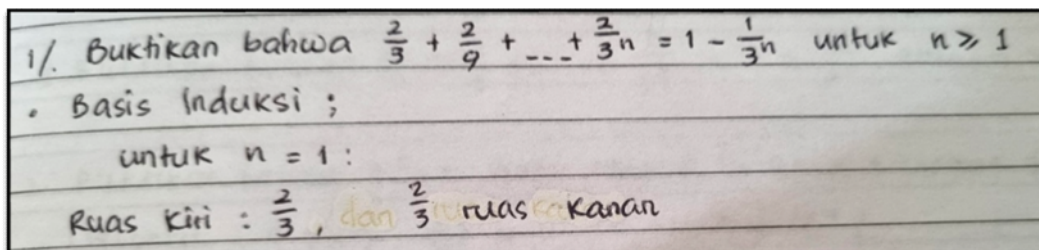 1/. Buktikan bahwa 2/3 + 2/9 + --- + 2/3ⁿ = 1 - 1/3ⁿ untuk n ≥ 1
• Basis Induksi ;
untuk n = 1 :
Ruas Kiri : 2/3 , dan 2/3 ruas Kanan